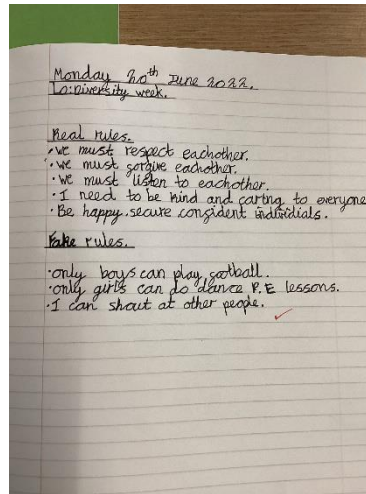 Monday 20th June 2022.
Lo: Diversity week.
Real rules.
• we must respect eachother.
• we must forgive eachother.
• we must listen to eachother.
• I need to be kind and caring to everyone
• Be happy, secure confident individials.
Fake rules.
• only boys can play football.
• only girls can do dance P.E lessons.
• I can shout at other people.